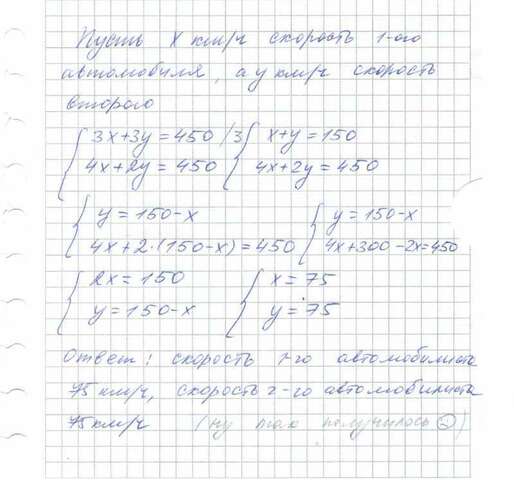 Пусть x км/ч скорость 1-ого
автомобиля, а y км/ч скорость
второго
{ 3x+3y=450 /3 { x+y=150
4x+2y=450 4x+2y=450
{ y=150-x { y=150-x
4x+2·(150-x)=450 4x+300-2x=450
{ 2x=150 { x=75
y=150-x y=75
Ответ: скорость 1-го автомобилиста
75 км/ч, скорость 2-го автомобилиста
75 км/ч (ну так получилось )